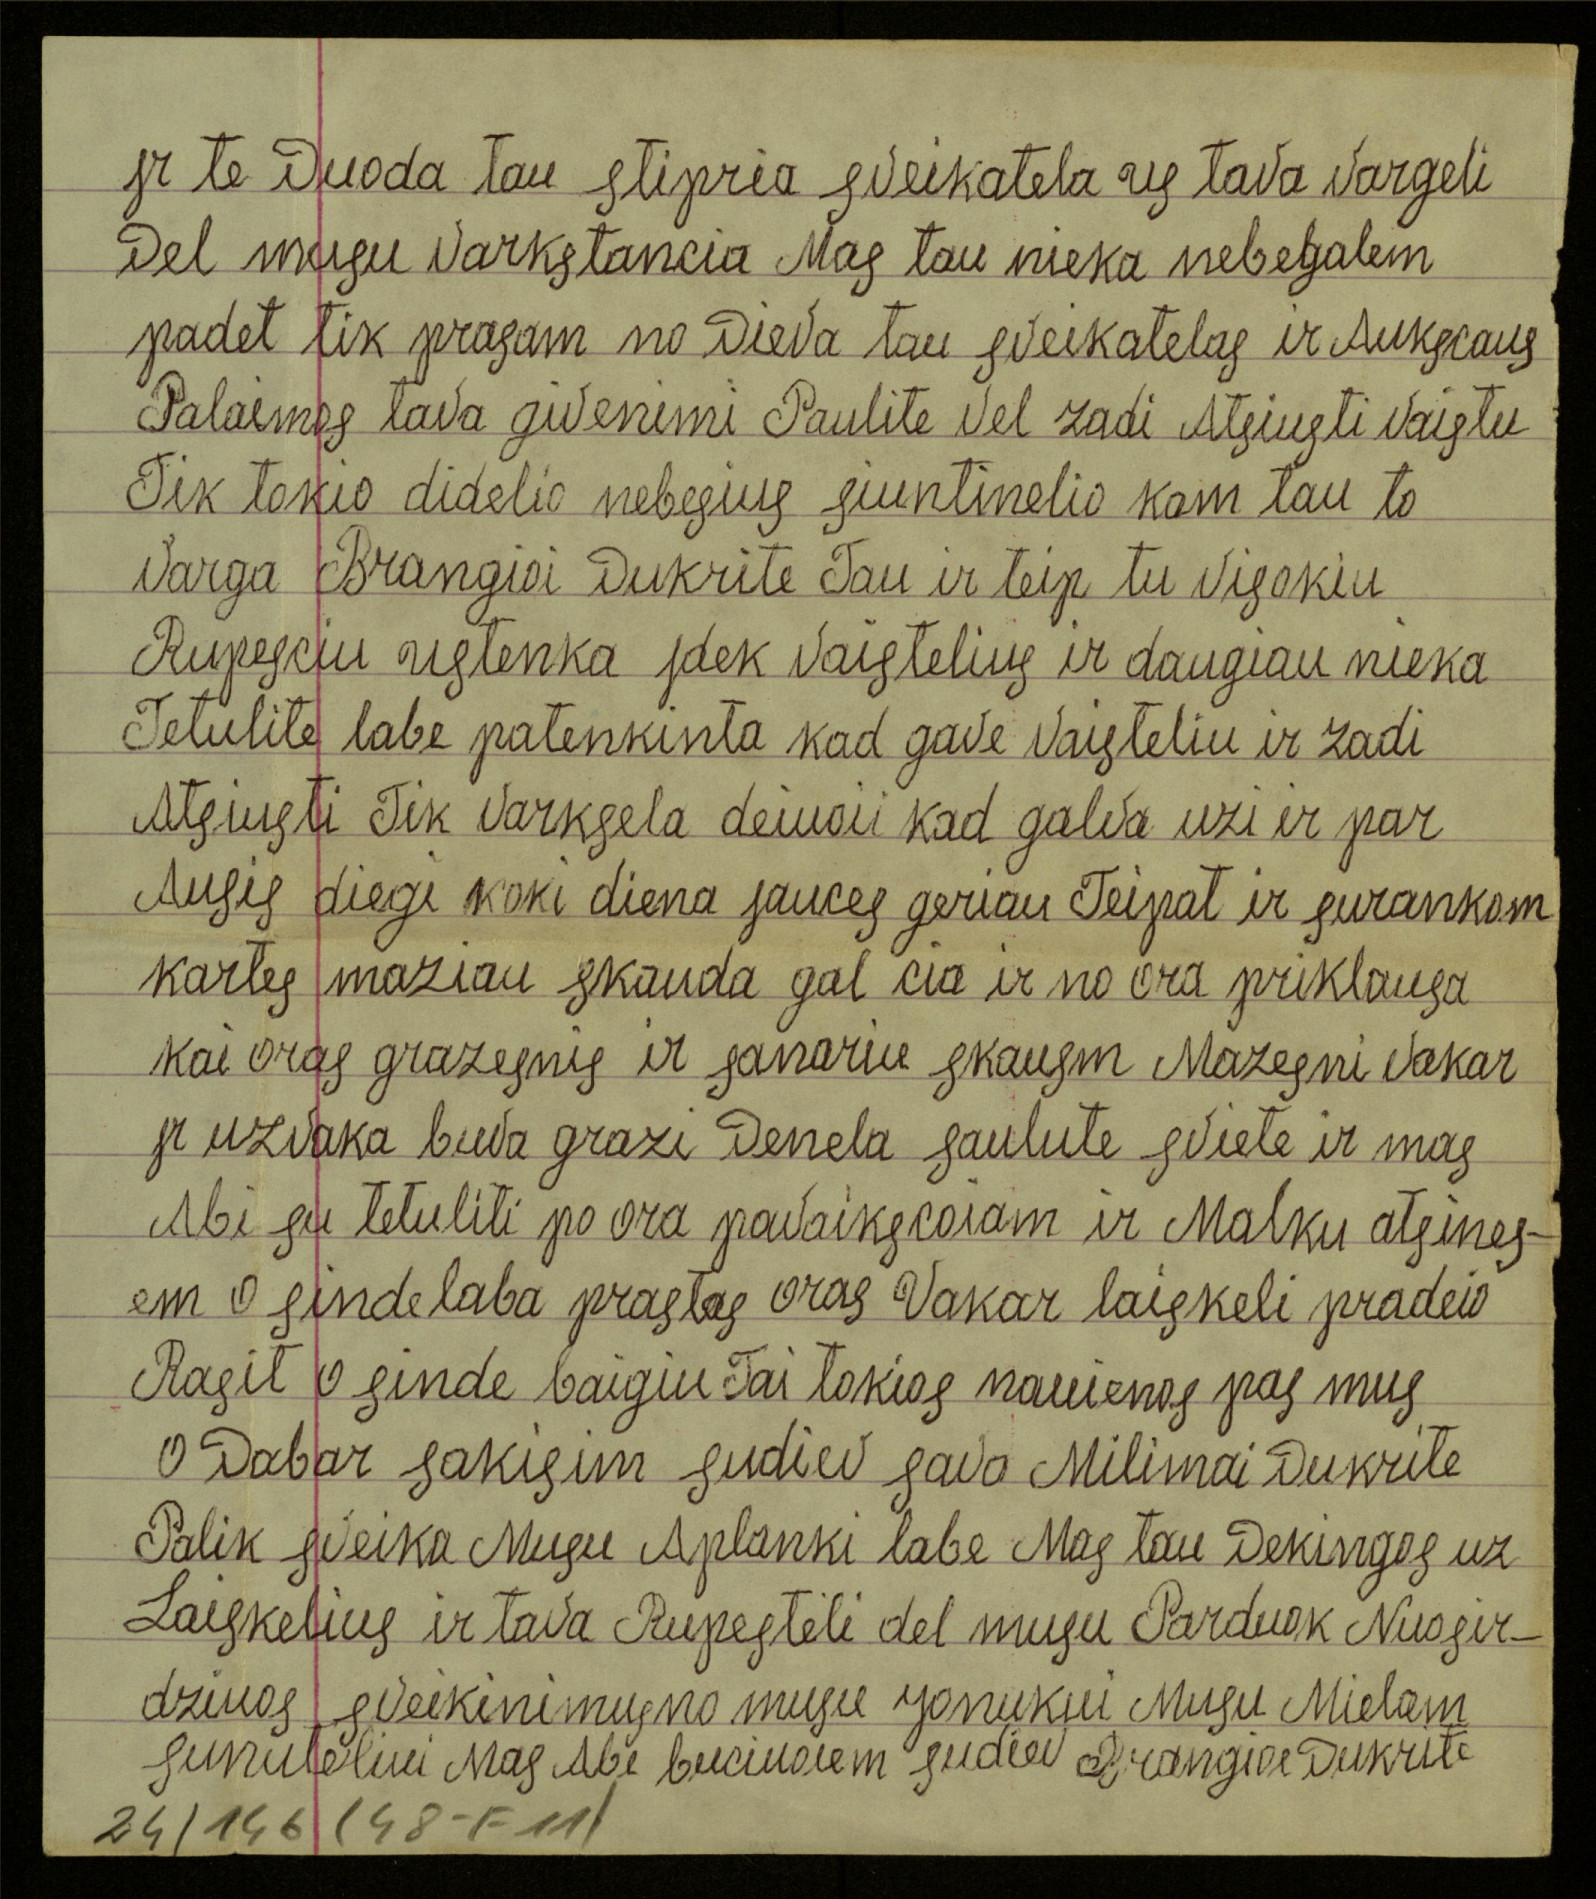 jr te Duoda tau stipria sveikatela us tava vargeli
Del musu varkstancia Mas tau nieka nebegalem
padet tik prasam no Dieva tau sveikatelas ir Aukscaus
Palaimos tava givenimi Paulite vel zadi Atsiusti vaistu
Tik tokio didelio nebesius siuntinelio kam tau to
varga Brangioi Dukrite Tau ir teip tu visokiu
Rupesciu ustenka jdek vaistelius ir daugiau nieka
Tetulite labe patenkinta kad gave vaisteliu ir zadi
Atsiusti Tik varksela deiuoii kad galva uzi ir par
Ausis diegi koki diena jauces geriau Teipat ir surankom
kartes maziau skauda gal cia ir no ora priklausa
kai oras grazesnis ir sanariu skausm Mazesni vakar
jr uzvaka buva grazi Denela saulute sviete ir mas
Abi su tetuliti po ora pavaikscoiam ir Malku atsines-
em o sinde laba prastas oras Vakar laiskeli pradeio
Rasit o sinde baigiu Tai tokios nauienos pas mus
o Dabar sakisim sudiev sava Milimai Dukrite
Palik sveika Musu Aplanki labe Mas tau Dekingos uz
Laiskelius ir tava Rupesteli del musu Parduok Nuosir-
dziuos sveikinimus no musu yonukui Musu Mielam
sunuteliui Mas Abi buciuoiem sudiev Brangioi Dukrite
24/146 (48-F11)